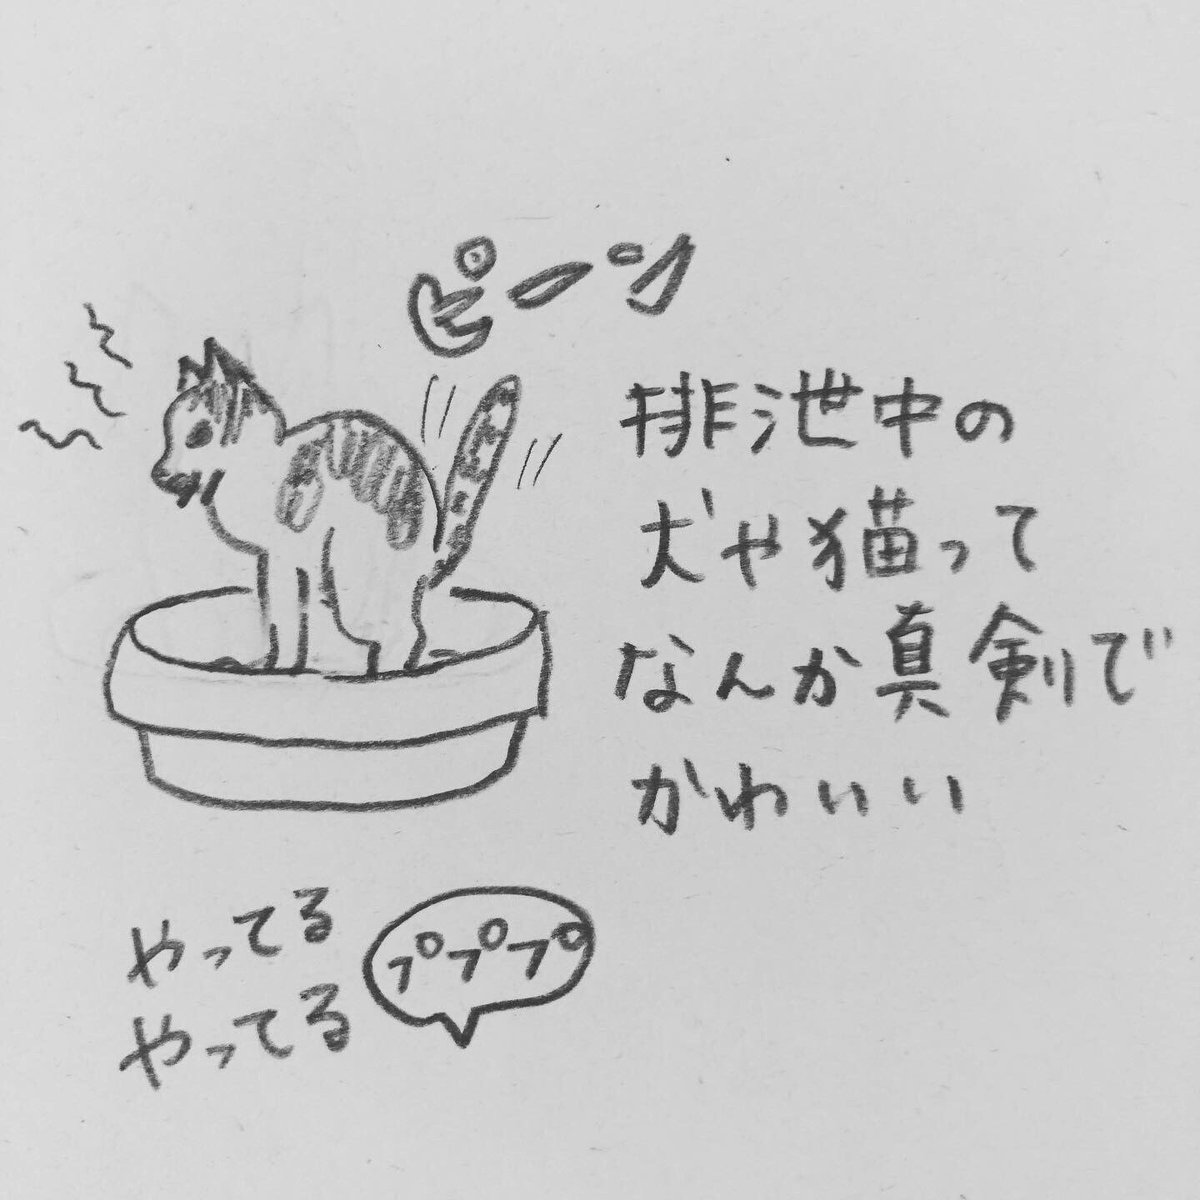 ピーン
排泄中の
犬や猫って
なんか真剣で
かわいい
やってる
やってる
プププ